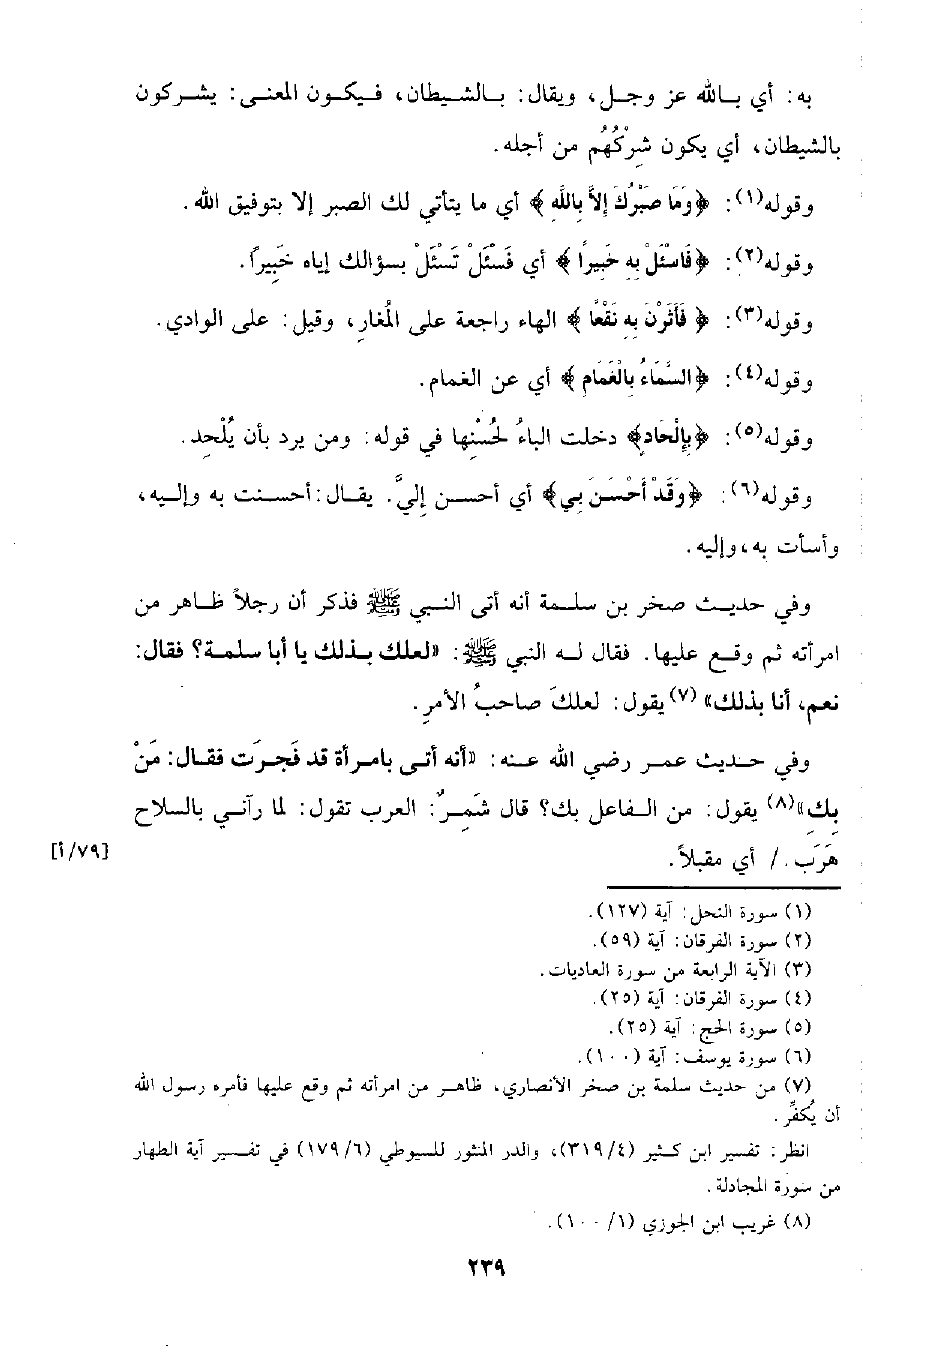 به: أي بـالله عز وجـل، ويقال: بـالشـيطان، فـيكـون المعنـى: يشـركون
بالشيطان، أي يكون شِرْكُهُم من أجله.
وقوله(١): ﴿وَمَا صَبْرُكَ إِلاَّ بِاللَّهِ﴾ أي ما يتأتي لك الصبر إلا بتوفيق الله.
وقوله(٢): ﴿فَاسْئَلْ بِهِ خَبِيرًا﴾ أي فَسْئَلْ تَسْئَلْ بسؤالك إياه خَبِيراً.
وقوله(٣): ﴿فَأَثَرْنَ بِهِ نَقْعًا﴾ الهاء راجعة على المُغارِ، وقيل: على الوادي.
وقوله(٤): ﴿السَّمَاءُ بِالْغَمَامِ﴾ أي عن الغمام.
وقوله(٥): ﴿بِإِلْحَادٍ﴾ دخلت الباءُ لحُسْنِها في قوله: ومن يرد بأن يُلْحِد.
وقوله(٦): ﴿وَقَدْ أَحْسَنَ بِي﴾ أي أحسـن إليَّ. يقـال: أحسـنت به وإليـه،
وأسأت به، وإليه.
وفي حديـث صخر بن سلـمة أنه أتى النـبي ﷺ فذكر أن رجلاً ظـاهر من
امرأته ثم وقـع عليها. فقال لـه النبي ﷺ: «لعلك بـذلك يا أبا سلمـة؟ فقال:
نعم، أنا بذلك»(٧) يقول: لعلكَ صاحبُ الأمرِ.
وفي حـديث عمـر رضي الله عـنه: «أنه أتـى بامـرأة قد فَجـرَت فقـال: مَنْ
بِكِ»(٨) يقول: من الـفاعل بك؟ قال شَمِـرٌ: العرب تقول: لما رآنـي بالسلاح
هَرَب. / أي مقبلاً.
[٧٩/أ]
(١) سورة النحل: آية (١٢٧).
(٢) سورة الفرقان: آية (٥٩).
(٣) الآية الرابعة من سورة العاديات.
(٤) سورة الفرقان: آية (٢٥).
(٥) سورة الحج: آية (٢٥).
(٦) سورة يوسف: آية (١٠٠).
(٧) من حديث سلمة بن صخر الأنصاري، ظاهـر من امرأته ثم وقع عليها فأمره رسول الله
أن يُكفِّر.
انظر: تفسير ابن كـثير (٣١٩/٤)، والدر المنثور للسيوطي (١٧٩/٦) في تفـسير آية الظهار
من سورة المجادلة.
(٨) غريب ابن الجوزي (١٠٠/١).
٢٣٩